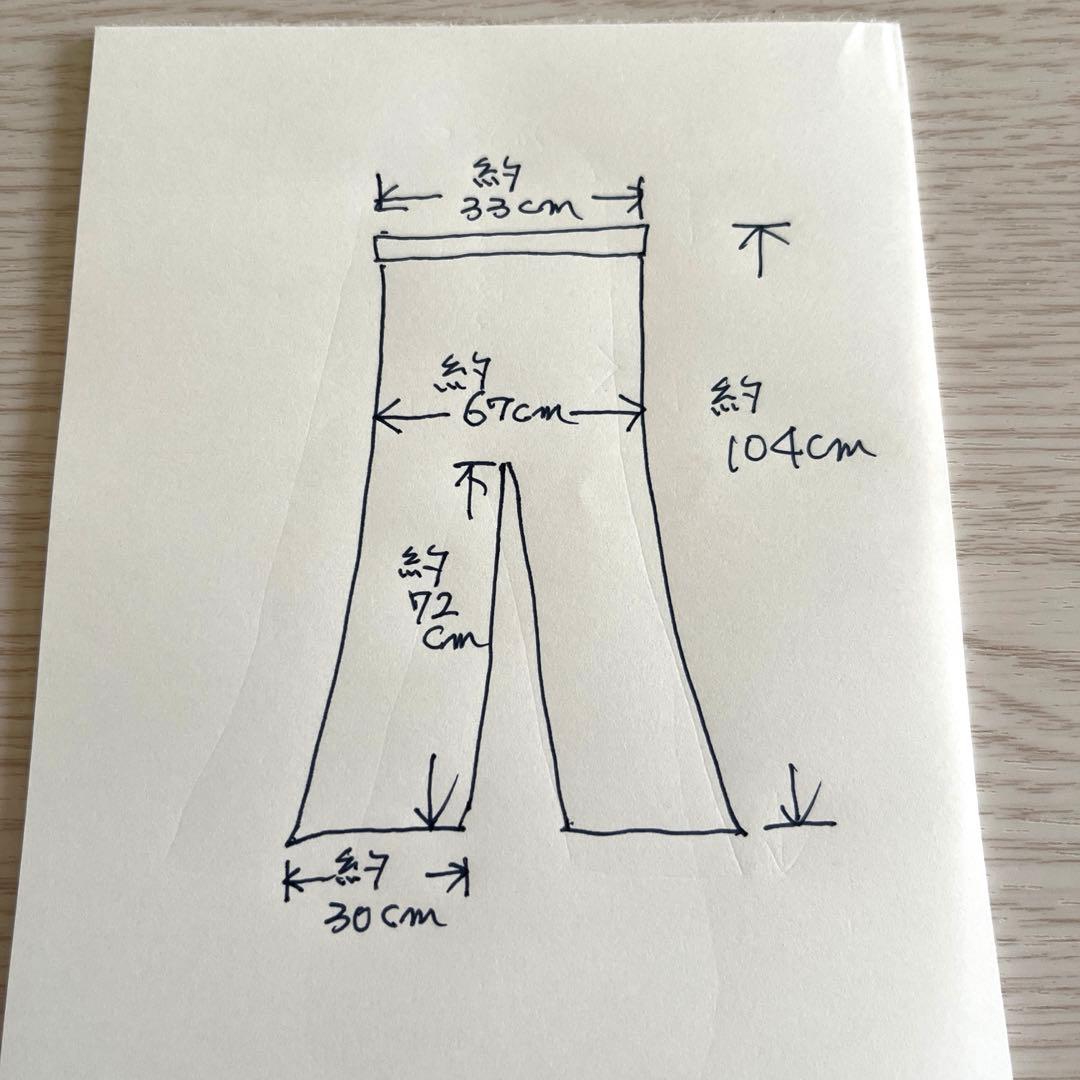 約
33cm
約
67cm
約
104cm
約
72
cm
約
30cm